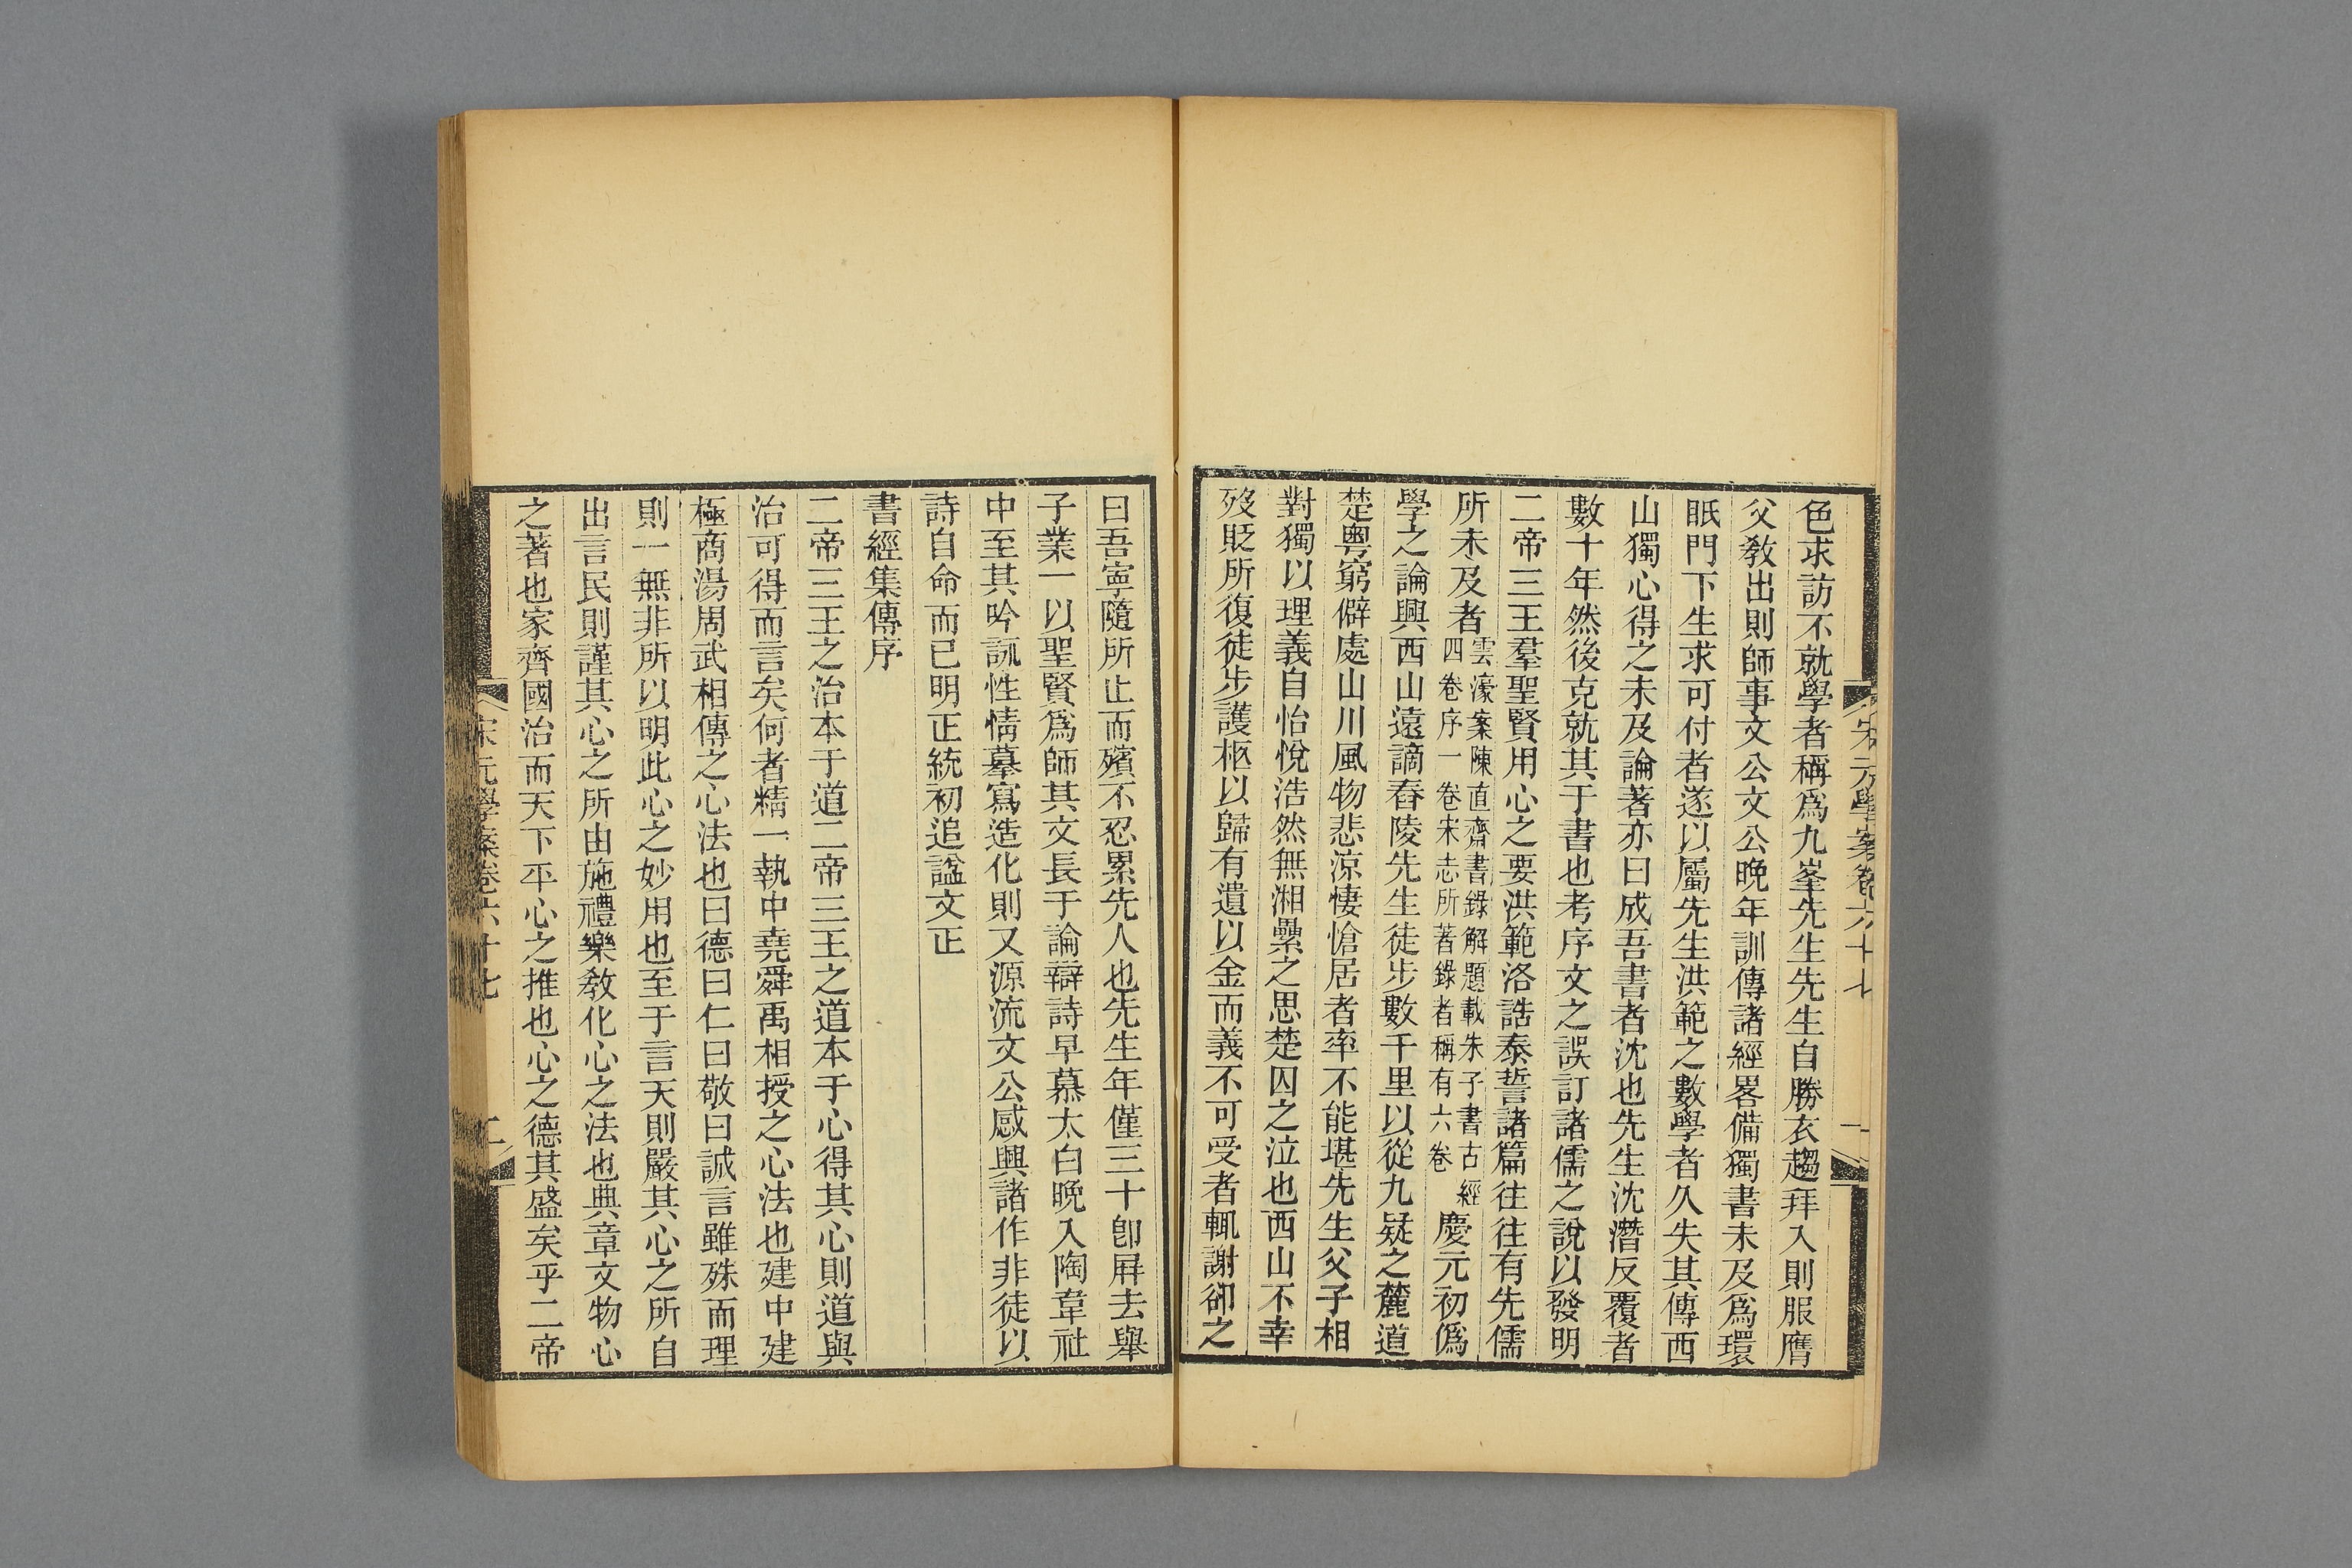 宋元學案卷六十七
色求訪不就學者稱爲九峯先生先生自勝衣趨拜入則服膺
父教出則師事文公文公晚年訓傳諸經畧備獨書未及爲環
眂門下生求可付者遂以屬先生洪範之數學者久失其傳西
山獨心得之未及論著亦曰成吾書者沈也先生沈潛反覆者
數十年然後克就其于書也考序文之誤訂諸儒之說以發明
二帝三王羣聖賢用心之要洪範洛誥泰誓諸篇往往有先儒
所未及者雲濠案陳直齋書錄解題載朱子書古經四卷序一卷宋志所著錄者稱有六卷慶元初僞
學之論興西山遠謫舂陵先生徒步數千里以從九疑之麓道
楚粵窮僻處山川風物悲涼悽愴居者率不能堪先生父子相
對獨以理義自怡悅浩然無湘纍之思楚囚之泣也西山不幸
歿貶所復徒步護柩以歸有遺以金而義不可受者輒謝卻之
曰吾寧隨所止而殯不忍累先人也先生年僅三十卽屏去舉
子業一以聖賢爲師其文長于論辯詩早慕太白晚入陶韋社
中至其吟諷性情摹寫造化則又源流文公感興諸作非徒以
詩自命而已明正統初追諡文正
書經集傳序
二帝三王之治本于道二帝三王之道本于心得其心則道與
治可得而言矣何者精一執中堯舜禹相授之心法也建中建
極商湯周武相傳之心法也曰德曰仁曰敬曰誠言雖殊而理
則一無非所以明此心之妙用也至于言天則嚴其心之所自
出言民則謹其心之所由施禮樂教化心之法也典章文物心
之著也家齊國治而天下平心之推也心之德其盛矣乎二帝
宋元學案卷六十七
二